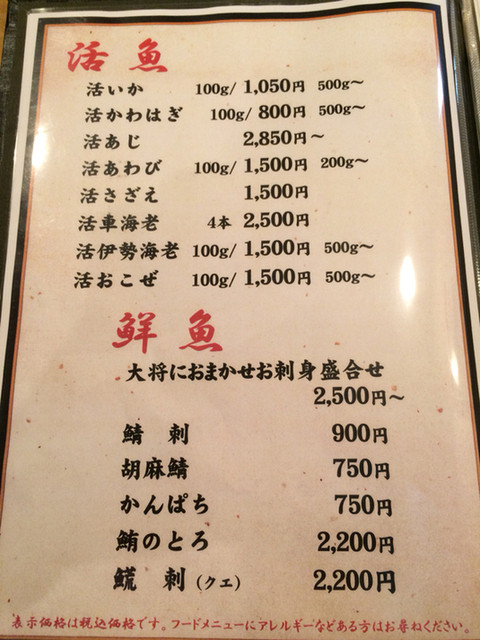 活魚
活いか 100g/ 1,050円 500g～
活かわはぎ 100g/ 800円 500g～
活あじ 2,850円～
活あわび 100g/ 1,500円 200g～
活さざえ 1,500円
活車海老 4本 2,500円
活伊勢海老 100g/ 1,500円 500g～
活おこぜ 100g/ 1,500円 500g～
鮮魚
大将におまかせお刺身盛合せ
2,500円～
鯖刺 900円
胡麻鯖 750円
かんぱち 750円
鮪のとろ 2,200円
鯍刺（クエ） 2,200円
表示価格は税込価格です。フードメニューにアレルギーなどある方はお尋ねください。